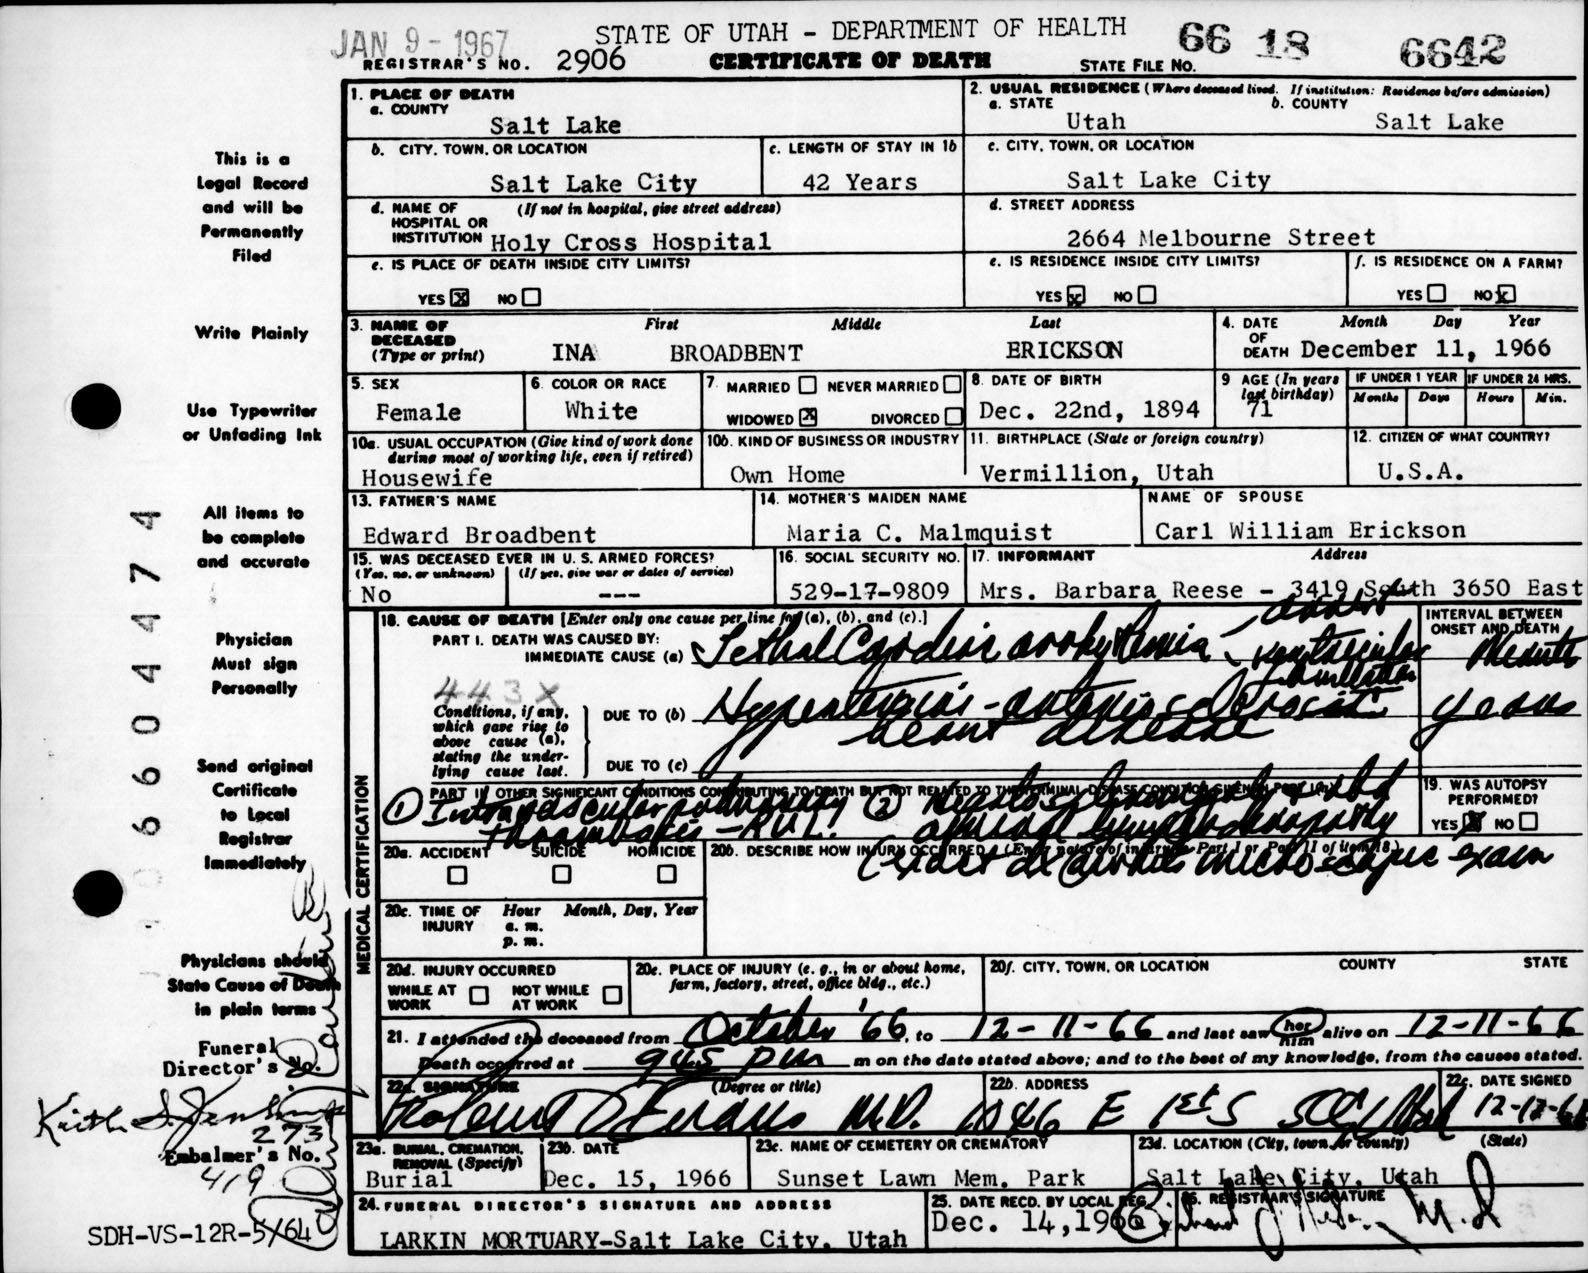 JAN 9 - 1967
STATE OF UTAH - DEPARTMENT OF HEALTH
66 18 6642
REGISTRAR'S NO. 2906 CERTIFICATE OF DEATH STATE FILE NO.
1. PLACE OF DEATH
a. COUNTY
Salt Lake
2. USUAL RESIDENCE (Where deceased lived. If institution: Residence before admission)
a. STATE b. COUNTY
Utah Salt Lake
b. CITY, TOWN, OR LOCATION
Salt Lake City
c. LENGTH OF STAY IN 1b
42 Years
c. CITY, TOWN, OR LOCATION
Salt Lake City
d. NAME OF HOSPITAL OR INSTITUTION (If not in hospital, give street address)
Holy Cross Hospital
d. STREET ADDRESS
2664 Melbourne Street
e. IS PLACE OF DEATH INSIDE CITY LIMITS?
YES X NO
e. IS RESIDENCE INSIDE CITY LIMITS?
YES X NO
f. IS RESIDENCE ON A FARM?
YES NO X
3. NAME OF DECEASED (Type or print)
First Middle Last
INA BROADBENT ERICKSON
4. DATE OF DEATH Month Day Year
December 11, 1966
5. SEX
Female
6. COLOR OR RACE
White
7. MARRIED NEVER MARRIED
WIDOWED X DIVORCED
8. DATE OF BIRTH
Dec. 22nd, 1894
9 AGE (In years last birthday)
71
IF UNDER 1 YEAR IF UNDER 24 HRS.
Months Days Hours Min.
10a. USUAL OCCUPATION (Give kind of work done during most of working life, even if retired)
Housewife
10b. KIND OF BUSINESS OR INDUSTRY
Own Home
11. BIRTHPLACE (State or foreign country)
Vermillion, Utah
12. CITIZEN OF WHAT COUNTRY?
U.S.A.
13. FATHER'S NAME
Edward Broadbent
14. MOTHER'S MAIDEN NAME
Maria C. Malmquist
NAME OF SPOUSE
Carl William Erickson
15. WAS DECEASED EVER IN U. S. ARMED FORCES?
(Yes, no, or unknown) (If yes, give war or dates of service)
No ---
16. SOCIAL SECURITY NO.
529-17-9809
17. INFORMANT Address
Mrs. Barbara Reese - 3419 South 3650 East
18. CAUSE OF DEATH [Enter only one cause per line for (a), (b), and (c).]
PART I. DEATH WAS CAUSED BY:
IMMEDIATE CAUSE (a) Lethal Cardiac arrhythmia - ventricular
443X
Conditions, if any, which gave rise to above cause (a), stating the underlying cause last.
DUE TO (b) Hypertensive - arteriosclerotic
heart disease
DUE TO (c)
INTERVAL BETWEEN ONSET AND DEATH
years
PART II. OTHER SIGNIFICANT CONDITIONS CONTRIBUTING TO DEATH BUT NOT RELATED TO THE TERMINAL DISEASE CONDITION GIVEN IN PART I (a)
(1) Intravascular pulmonary (2) Hepatosplenomegaly
thrombosis - RUL. lymphadenopathy
(exact dx awaits microscopic exam
19. WAS AUTOPSY PERFORMED?
YES X NO
20a. ACCIDENT SUICIDE HOMICIDE
20b. DESCRIBE HOW INJURY OCCURRED. (Enter nature of injury in Part I or Part II of item 18.)
20c. TIME OF INJURY Hour Month, Day, Year
a. m.
p. m.
20d. INJURY OCCURRED
WHILE AT WORK NOT WHILE AT WORK
20e. PLACE OF INJURY (e. g., in or about home, farm, factory, street, office bldg., etc.)
20f. CITY, TOWN, OR LOCATION COUNTY STATE
21. I attended the deceased from October '66, to 12-11-66 and last saw her him alive on 12-11-66
Death occurred at 945 pm m on the date stated above; and to the best of my knowledge, from the causes stated.
22a. SIGNATURE (Degree or title)
Robert D Evans M.D.
22b. ADDRESS
E 1st S SLC, Utah
22c. DATE SIGNED
23a. BURIAL, CREMATION, REMOVAL (Specify)
Burial
23b. DATE
Dec. 15, 1966
23c. NAME OF CEMETERY OR CREMATORY
Sunset Lawn Mem. Park
23d. LOCATION (City, town, or county) (State)
Salt Lake City, Utah
24. FUNERAL DIRECTOR'S SIGNATURE AND ADDRESS
LARKIN MORTUARY-Salt Lake City, Utah
25. DATE RECD. BY LOCAL REG.
Dec. 14, 1966
26. REGISTRAR'S SIGNATURE
M.D
MEDICAL CERTIFICATION
This is a
Legal Record
and will be
Permanently
Filed
Write Plainly
Use Typewriter
or Unfading Ink
All items to
be complete
and accurate
Physician
Must sign
Personally
Send original
Certificate
to Local
Registrar
Immediately
Physicians should
State Cause of Death
in plain terms
Funeral
Director's No.
Keith S. Jensen
273
Embalmer's No.
419
SDH-VS-12R-5/64
6604474